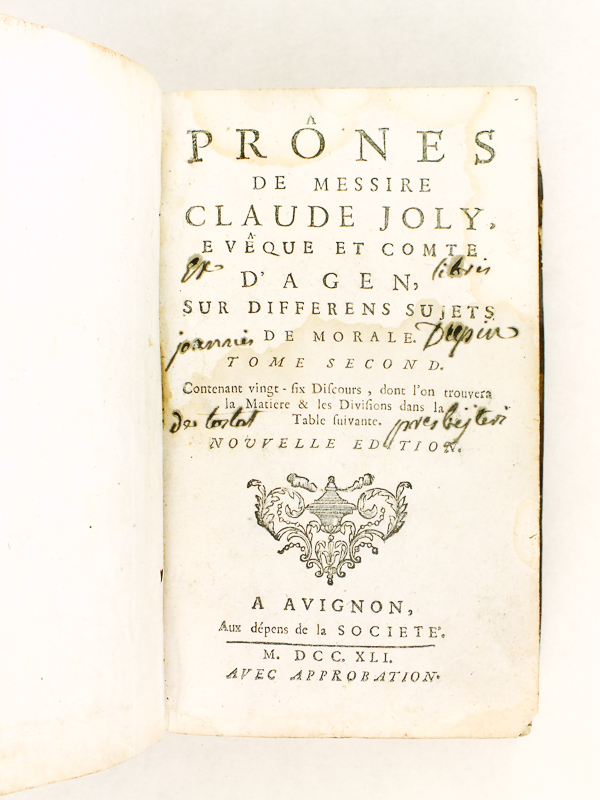 PRÔNES
DE MESSIRE
CLAUDE JOLY,
EVÊQUE ET COMTE
Ex libris
D'AGEN,
SUR DIFFERENS SUJETS
DE MORALE.
joannis Dupin
TOME SECOND.
Contenant vingt-six Discours, dont l'on trouvera
la Matiere & les Divisions dans la
Table suivante.
presbyteri
NOUVELLE EDITION.
A AVIGNON,
Aux dépens de la SOCIETE'.
M. DCC. XLI.
AVEC APPROBATION.